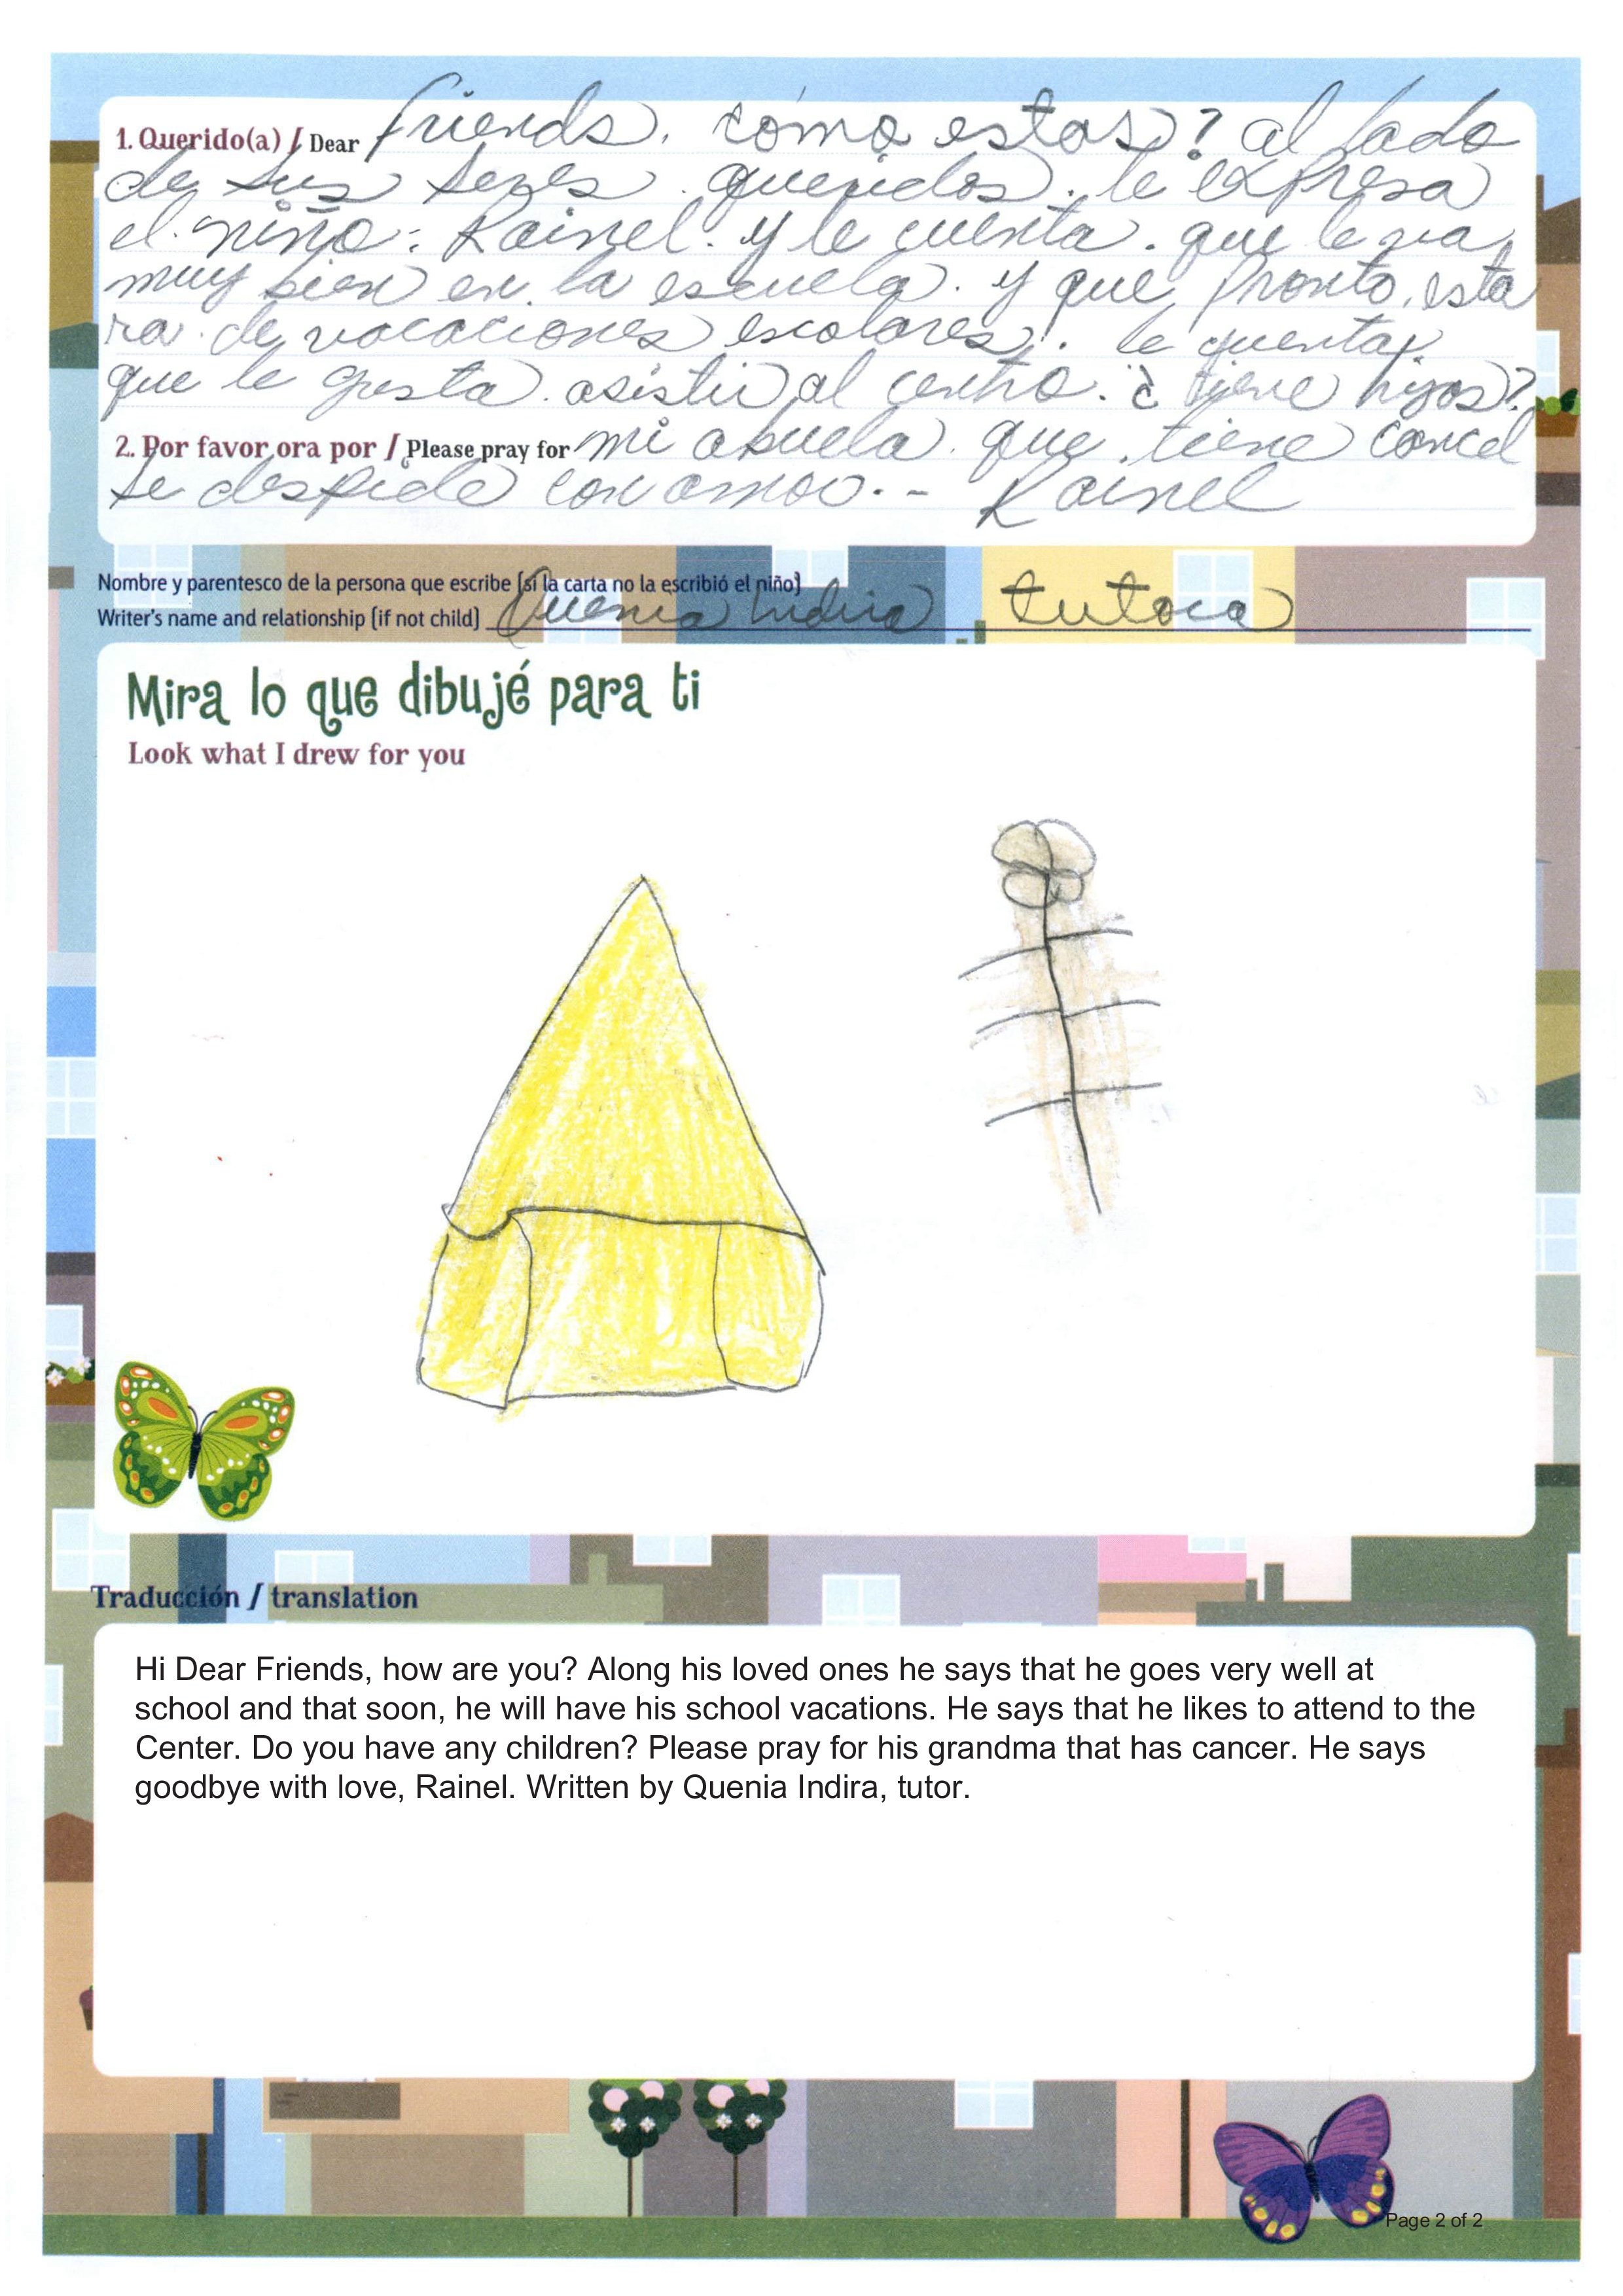 1. Querido(a) / Dear friends, como estas? al lado
de sus seres queridos. le expresa
el niño: Rainel. y le cuenta. que le va
muy bien en la escuela. y que pronto, esta
ra de vacaciones escolares. le cuenta
que le gusta asistir al centro. ¿tiene hijos?
2. Por favor ora por / Please pray for mi abuela que tiene cancel
se despide con amor.- Rainel
Nombre y parentesco de la persona que escribe (si la carta no la escribió el niño)
Writer's name and relationship (if not child) Quenia Indira tutora
Mira lo que dibujé para ti
Look what I drew for you
Traducción / translation
Hi Dear Friends, how are you? Along his loved ones he says that he goes very well at
school and that soon, he will have his school vacations. He says that he likes to attend to the
Center. Do you have any children? Please pray for his grandma that has cancer. He says
goodbye with love, Rainel. Written by Quenia Indira, tutor.
Page 2 of 2